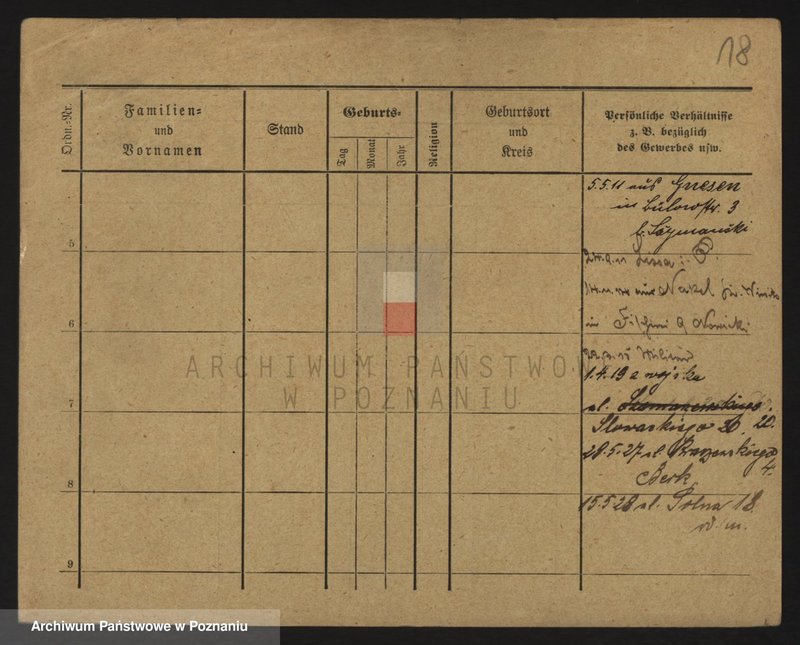 18
Ordn.-Nr.
Familien-
und
Vornamen
Stand
Geburts-
Tag
Monat
Jahr
Religion
Geburtsort
und
Kreis
Persönliche Verhältnisse
z. B. bezüglich
des Gewerbes usw.
5.5.11 aus Gnesen
in Bülowstr. 3
b. Szymański
5
Lissa
aus Nakel
6
in
Nowicki
1.4.19 z wojska
ul.
7
Słowackiego 20
28.5.27 ul. Kraszewskiego
4.
8
Berk
15.5.28 ul. Polna 18
9
ARCHIWUM PAŃSTWOW
W POZNANIU
Archiwum Państwowe w Poznaniu